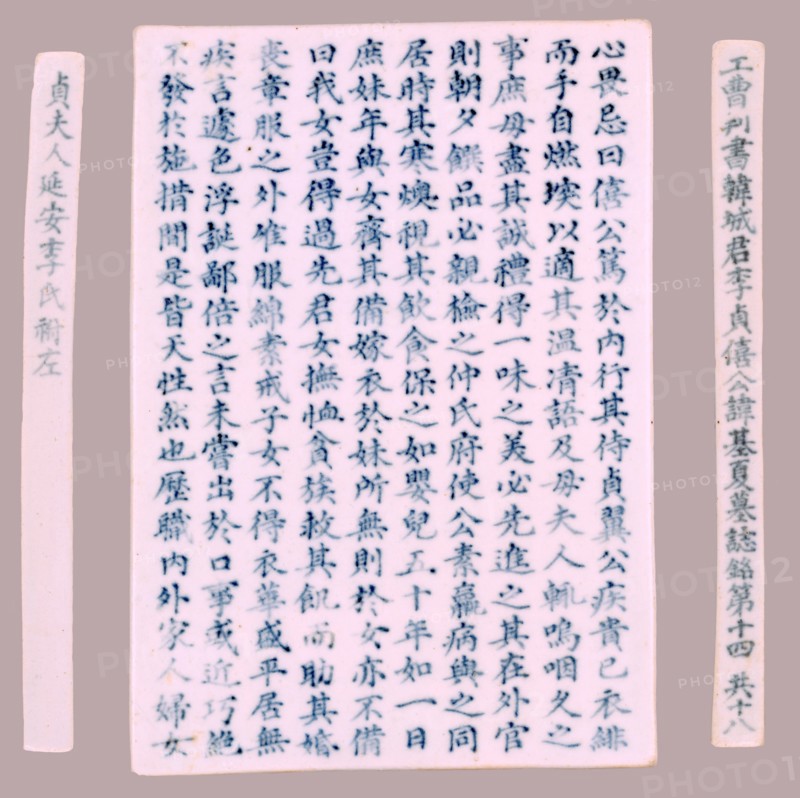 工曹判書韓城君李貞僖公諱基夏墓誌銘第十四 共十八
心畏忌曰僖公篤於内行其侍貞翼公疾貴已衣緋
而手自燃堗以適其温凊語及母夫人輒嗚咽久之
事庶母盡其誠禮得一味之美必先進之其在外官
則朝夕饌品必親檢之仲氏府使公素羸病與之同
居時其寒燠視其飮食保之如嬰兒五十年如一日
庶妹年與女齊其備嫁衣於妹所無則於女亦不備
曰我女豈得過先君女撫恤貧族救其飢而助其婚
喪章服之外唯服綿素戒子女不得衣華盛平居無
疾言遽色浮誕鄙倍之言未嘗出於口事或近巧絶
不發於施措間是皆天性然也歷職内外家人婦女
貞夫人延安李氏祔左
PHOTO12